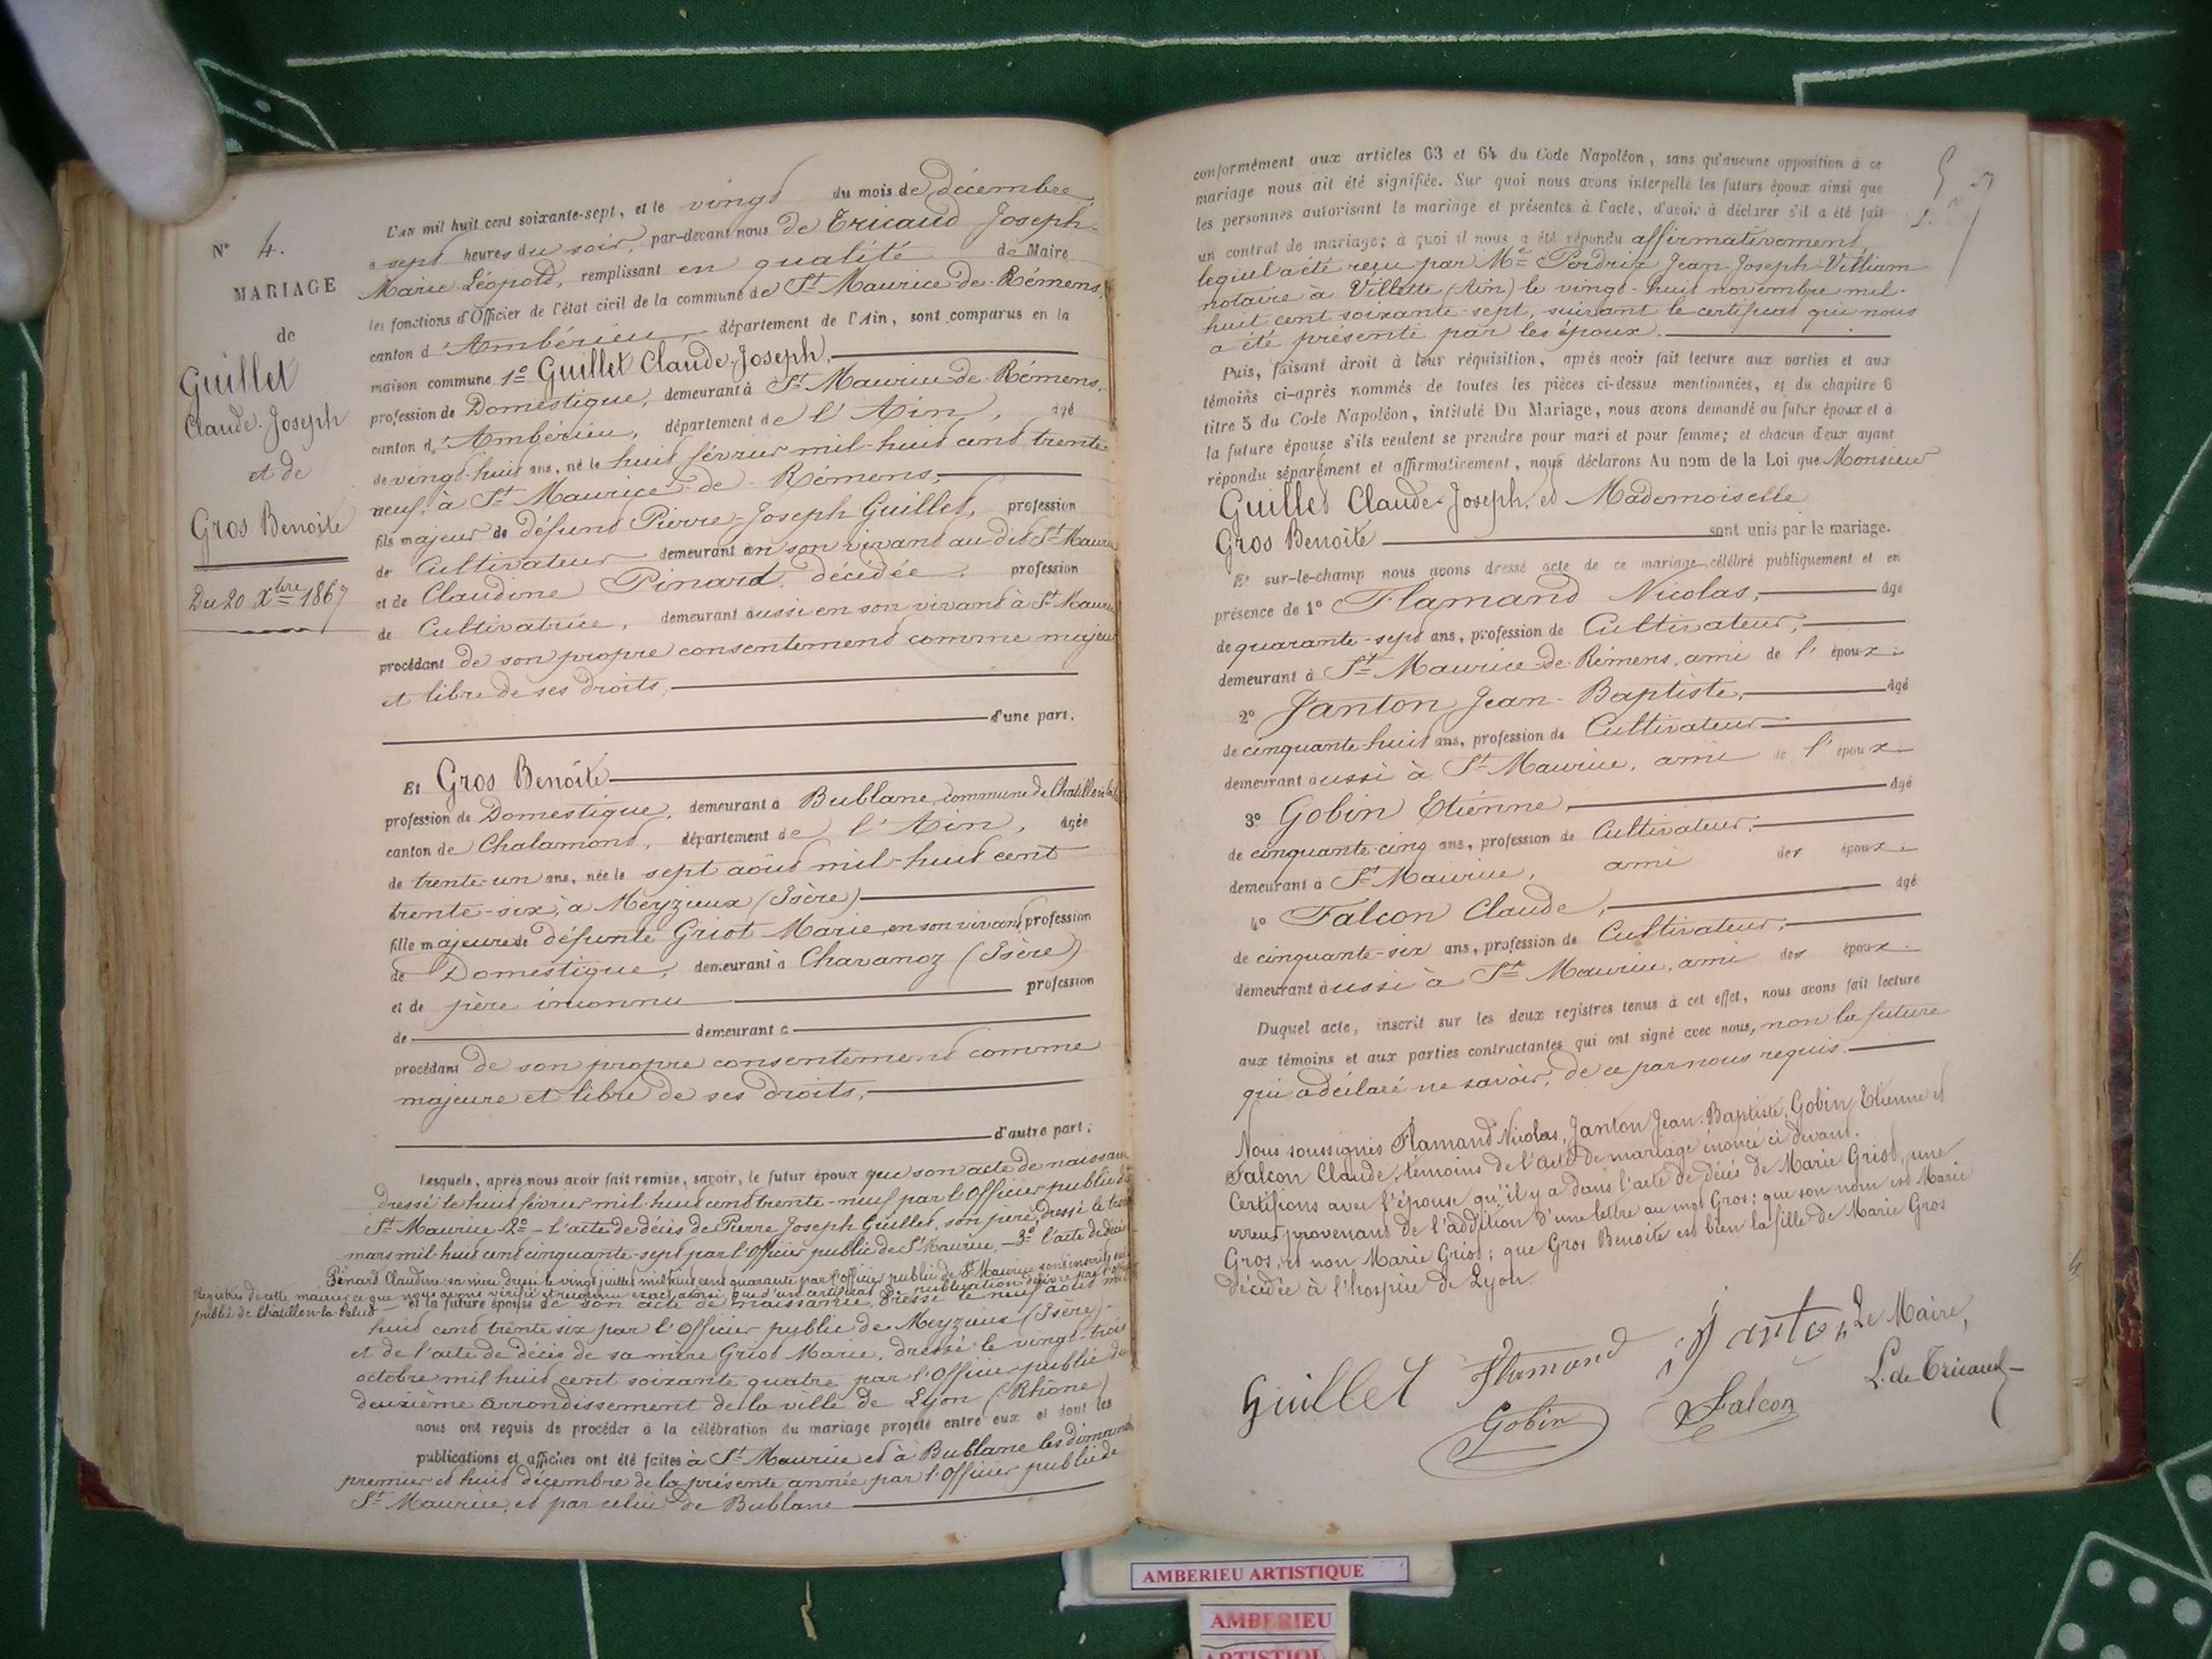 N° 4.
MARIAGE
de
Guillet
Claude-Joseph
et de
Gros Benoite
Du 20 Xbre 1867
L'an mil huit cent soixante-sept, et le vingt du mois de décembre,
à sept heures du soir, par-devant nous de Tricaud Joseph-
Marie-Léopold, remplissant en qualité de Maire
les fonctions d'Officier de l'état civil de la commune de St Maurice-de-Rémens,
canton d'Ambérieu, département de l'Ain, sont comparus en la
maison commune 1° Guillet Claude-Joseph,
profession de Domestique, demeurant à St Maurice-de-Rémens,
canton d'Ambérieu, département de l'Ain, âgé
de vingt-huit ans, né le huit février mil-huit cent trente
neuf, à St Maurice-de-Rémens,
fils majeur de défunt Pierre-Joseph Guillet, profession
de Cultivateur demeurant en son vivant au dit St Mauri
et de Claudine Pinard, décédée, profession
de Cultivatrice, demeurant aussi en son vivant à St Mauri
procédant de son propre consentement comme majeu
et libre de ses droits,
d'une part;
Et Gros Benoîte
profession de Domestique, demeurant à Bublane, commune de Chatillon la
canton de Chalamont, département de l'Ain, âgée
de trente-un ans, née le sept août mil-huit cent
trente-six, à Meyzieux (Isère)
fille majeure de défunte Griot Marie, en son vivant profession
de Domestique, demeurant à Chavanoz (Isère)
et de père inconnu profession
de demeurant à
procédant de son propre consentement comme
majeure et libre de ses droits,
d'autre part;
Lesquels, après nous avoir fait remise, savoir, le futur époux que son acte de naissan
dressé le huit février mil-huit cent trente-neuf par l'Officier public de
St Maurice 2° - l'acte de décès de Pierre Joseph Guillet, son père, dressé le
mars mil-huit cent cinquante-sept par l'Officier public de St Maurice, - 3° l'acte de décès
Pinard Claudine sa mère dressé le vingt juillet mil huit cent quarante par l'officier public de St Maurice sont inscrits
Registres de cette mairie, ce que nous avons vérifié et reconnu exact, ainsi que d'un certificat de publication délivré par l'off
public de Chatillon-la-Palud - et la future épouse de son acte de naissance, dressé le neuf août mil
huit cent trente six par l'Officier public de Meyzieux (Isère) -
et de l'acte de décès de sa mère Griot Marie, dressé le vingt-trois
octobre mil huit cent soixante quatre par l'Officier public du
deuxième arrondissement de la ville de Lyon (Rhône)
nous ont requis de procéder à la célébration du mariage projeté entre eux et dont les
publications et affiches ont été faites à St Maurice et à Bublane les diman
premier et huit décembre de la présente année par l'Officier public de
St Maurice, et par celui de Bublane
conformément aux articles 63 et 64 du Code Napoléon, sans qu'aucune opposition à ce
mariage nous ait été signifiée. Sur quoi nous avons interpellé les futurs époux ainsi que
les personnes autorisant le mariage et présentes à l'acte, d'avoir à déclarer s'il a été fait
un contrat de mariage; à quoi il nous a été répondu affirmativement,
lequel a été reçu par Me Perdrix Jean-Joseph-Villiam
notaire à Villette (Ain) le vingt-huit novembre mil-
huit cent soixante-sept, suivant le certificat qui nous
a été présenté par les époux.
Puis, faisant droit à leur réquisition, après avoir fait lecture aux parties et aux
témoins ci-après nommés de toutes les pièces ci-dessus mentionnées, et du chapitre 6
titre 5 du Code Napoléon, intitulé Du Mariage, nous avons demandé au futur époux et à
la future épouse s'ils veulent se prendre pour mari et pour femme; et chacun d'eux ayant
répondu séparément et affirmativement, nous déclarons Au nom de la Loi que Monsieur
Guillet Claude-Joseph, et Mademoiselle
Gros Benoîte sont unis par le mariage.
Et sur-le-champ nous avons dressé acte de ce mariage célébré publiquement et en
présence de 1° Flamand Nicolas, âgé
de quarante-sept ans, profession de Cultivateur,
demeurant à St Maurice-de-Rémens, ami de l'époux.
2° Janton Jean-Baptiste, âgé
de cinquante-huit ans, profession de Cultivateur
demeurant aussi à St Maurice, ami de l'époux
3° Gobin Etienne, âgé
de cinquante-cinq ans, profession de Cultivateur,
demeurant à St Maurice, ami des époux.
4° Falcon Claude, âgé
de cinquante-six ans, profession de Cultivateur,
demeurant aussi à St Maurice, ami des époux.
Duquel acte, inscrit sur les deux registres tenus à cet effet, nous avons fait lecture
aux témoins et aux parties contractantes qui ont signé avec nous, non la future
qui a déclaré ne savoir, de ce par nous requis.
Nous soussignés Flamand Nicolas, Janton Jean-Baptiste, Gobin Etienne et
Falcon Claude, témoins de l'acte de mariage énoncé ci devant.
Certifions avec l'épouse qu'il y a dans l'acte de décès de Marie Griot, une
erreur provenant de l'addition d'une lettre au mot Gros; que son nom est Marie
Gros, et non Marie Griot; que Gros Benoite est bien la fille de Marie Gros
décédée à l'hospice de Lyon.
Guillet Flamand Janton Le Maire,
Gobin Falcon L. de Tricaud
AMBERIEU ARTISTIQUE
AMBERIEU
ARTISTIQU